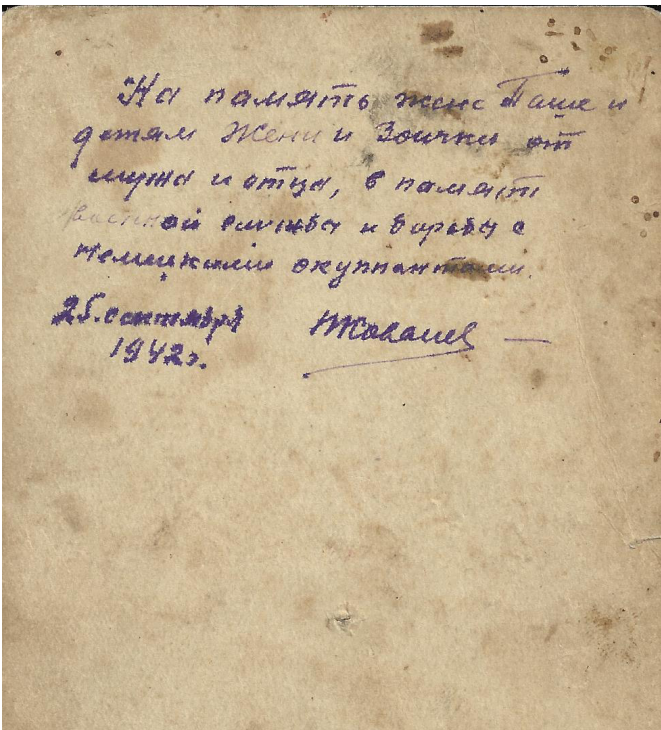 На память жене Паше и
детям Жени и Зоички от
мужа и отца, в память
военной службы и борьбы с
немецкими оккупантами.
25. сентября
1942 г.